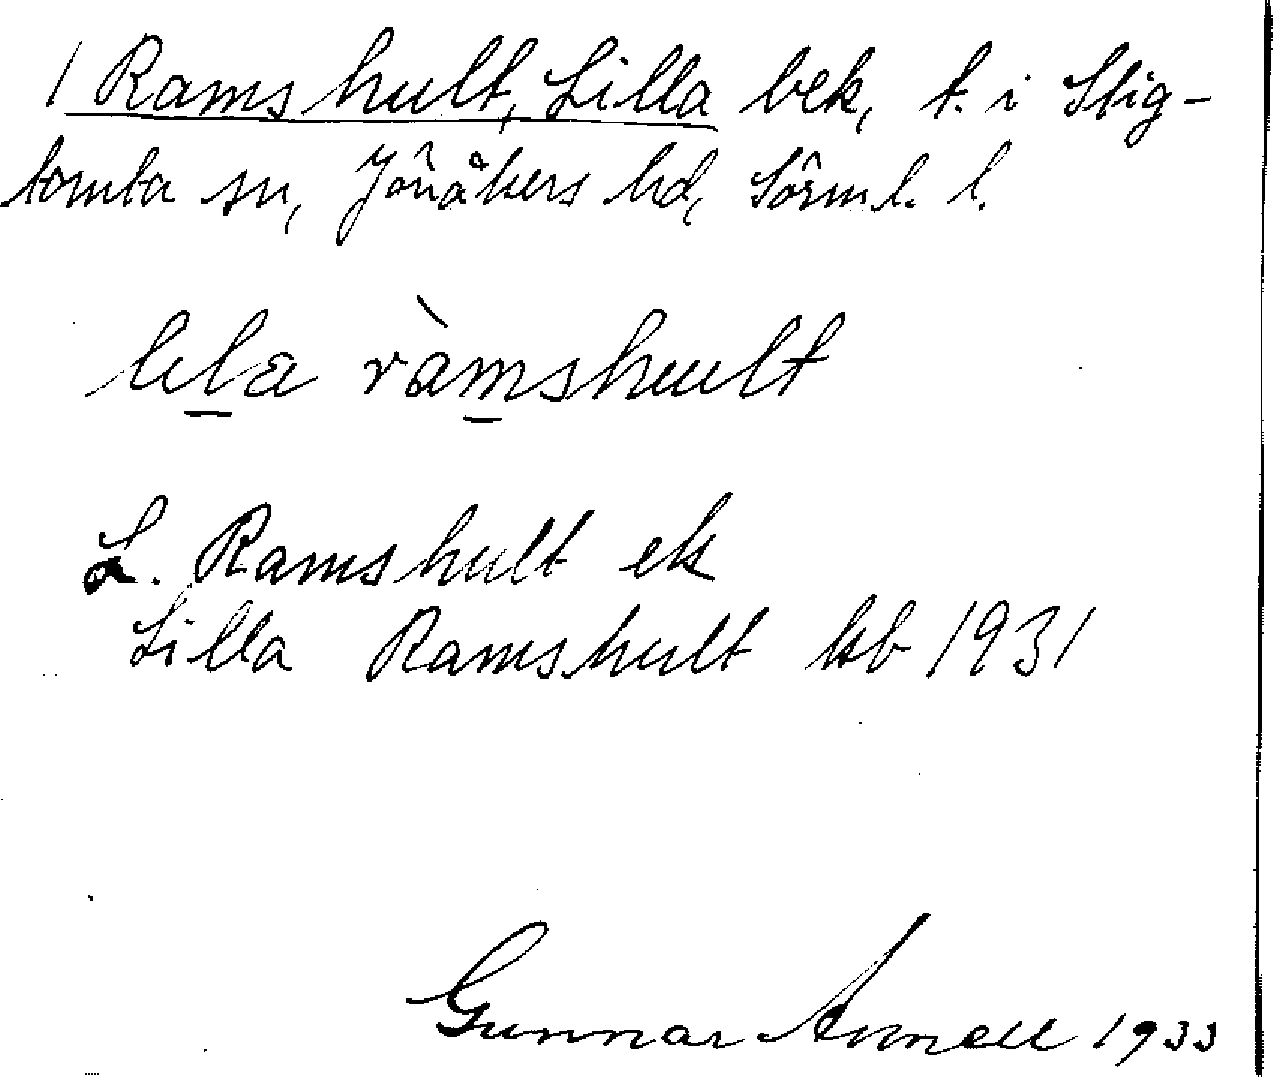 1 Ramshult, Lilla bek, t. i Stig-
tomta sn, Jönåkers hd, Sörml. l.
lila ràmshult
L. Ramshult ek
Lilla Ramshult kb 1931
Gunnar Annell 1933